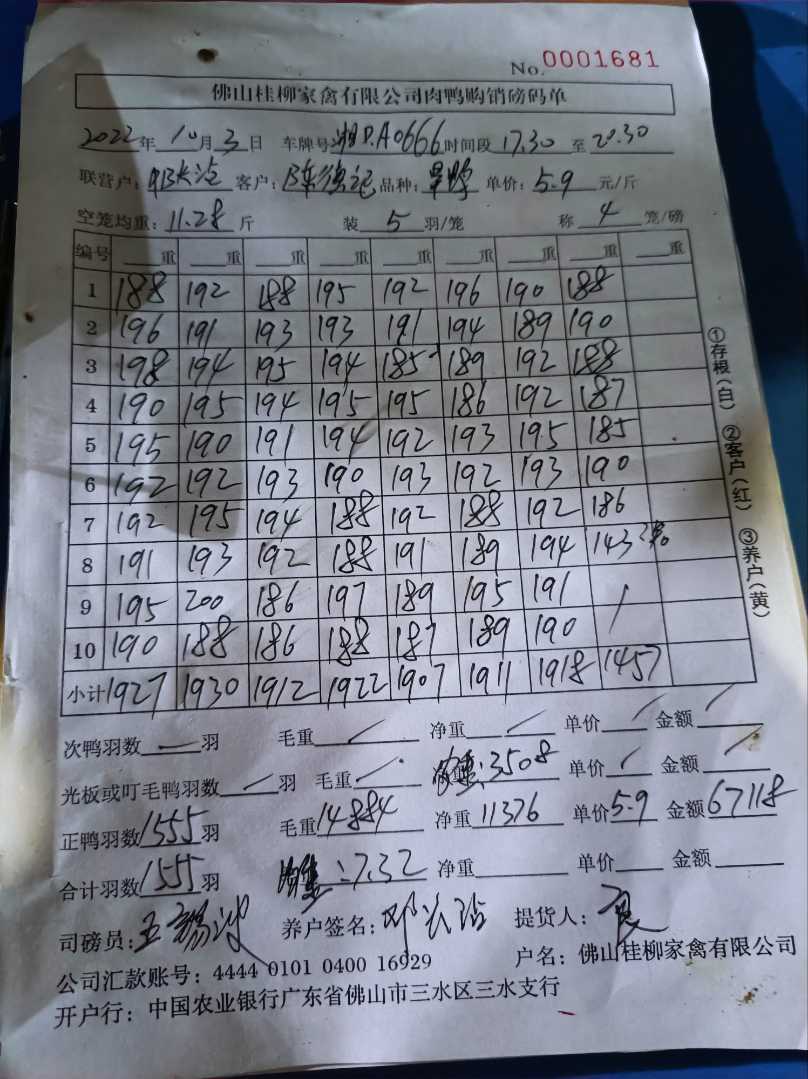 No. 0001681
佛山桂柳家禽有限公司肉鸭购销磅码单
2022年10月3日 车牌号湘D.A0666时间段17.30至20.30
联营户: 客户: 品种: 单价:5.9元/斤
空笼均重:11.28斤 装5羽/笼 称4笼/磅
编号 重 重 重 重 重 重 重 重 重
1 188 192 188 195 192 196 190 188
2 196 191 193 193 191 194 189 190
3 198 194 195 194 185 189 192 188
4 190 195 194 195 195 186 192 187
5 195 190 191 194 192 193 195 185
6 192 192 193 190 193 192 193 190
7 192 195 194 188 192 188 192 186
8 191 193 192 188 191 189 194 143
9 195 200 186 197 189 195 191 /
10 190 188 186 188 187 189 190 /
小计 1927 1930 1912 1922 1907 1911 1918 1457
①存根(白) ②客户(红) ③养户(黄)
次鸭羽数—羽 毛重/ 净重/ 单价/ 金额/
光板或叮毛鸭羽数/羽 毛重/ :3508 单价/ 金额/
正鸭羽数1555羽 毛重14884 净重11376 单价5.9 金额67118
合计羽数1555羽 :7.32 净重 单价 金额
司磅员: 养户签名:邓长 提货人:
公司汇款账号:4444 0101 0400 16929 户名:佛山桂柳家禽有限公司
开户行:中国农业银行广东省佛山市三水区三水支行